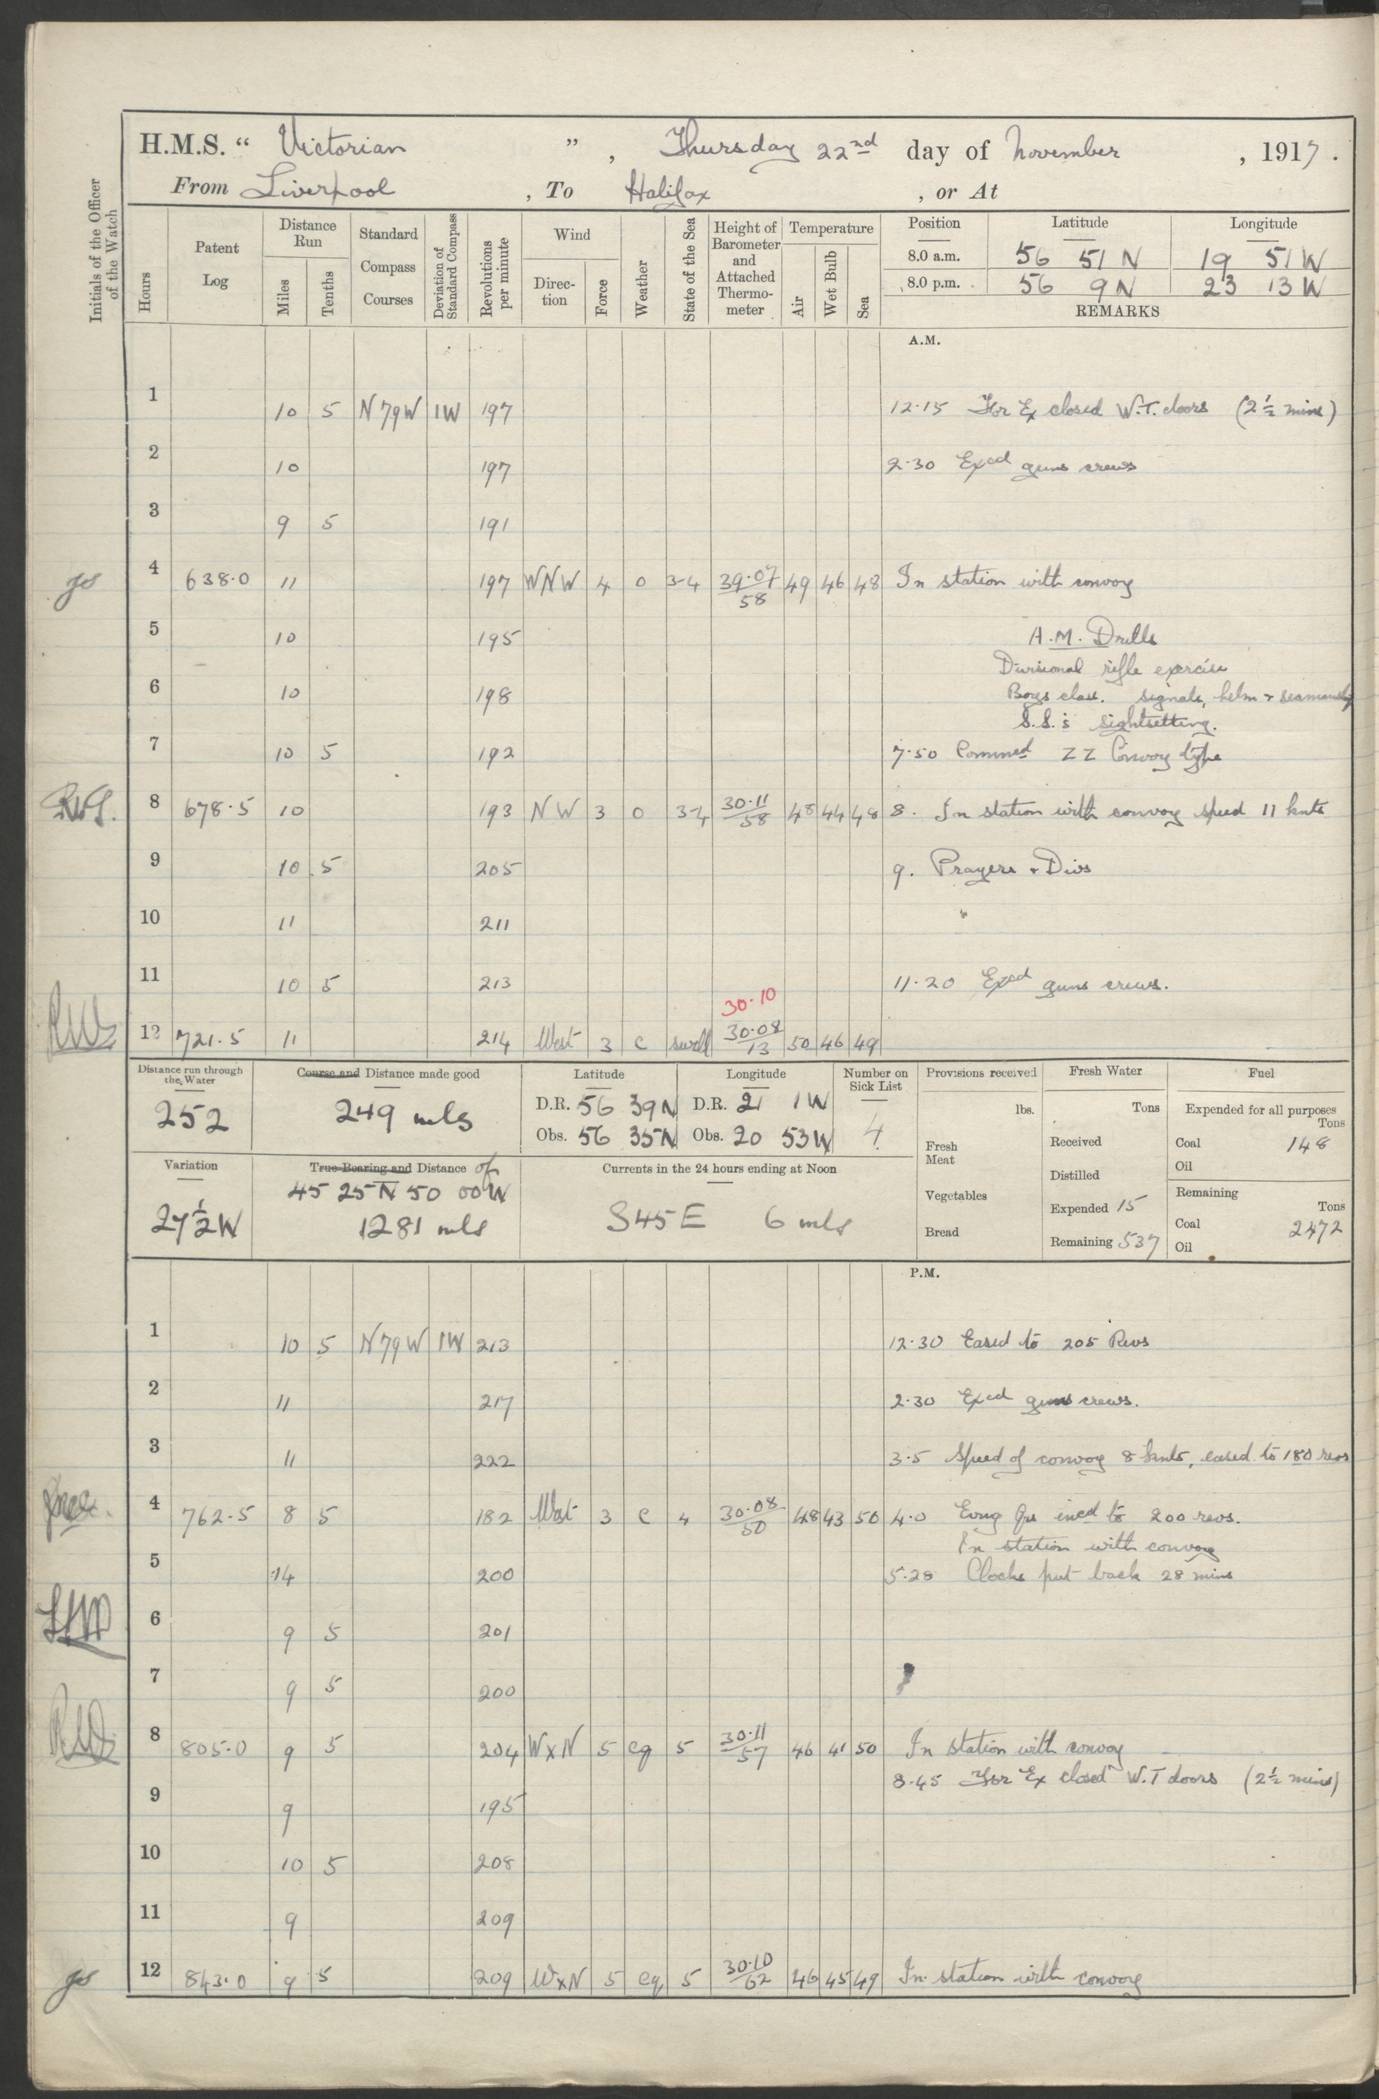 H.M.S. “ Victorian ” , Thursday 22nd day of November , 1917 .
From Liverpool , To Halifax , or At
Initials of the Officer of the Watch
Hours
Patent Log
Distance Run
Miles
Tenths
Standard Compass Courses
Deviation of Standard Compass
Revolutions per minute
Wind
Direc-tion
Force
Weather
State of the Sea
Height of Barometer and Attached Thermo-meter
Temperature
Air
Wet Bulb
Sea
Position Latitude Longitude
8.0 a.m. 56 51 N 19 51 W
8.0 p.m. 56 9 N 23 13 W
REMARKS
A.M.
1 10 5 N79W 1W 197 12·15 For Ex closed W.T. doors (2½ mins)
2 10 197 2·30 Exed guns crews
3 9 5 191
4 638·0 11 197 WNW 4 o 3-4 39·07/58 49 46 48 In station with convoy
5 10 195 A.M. Drills
Divisional rifle exercise
6 10 198 Boys class. signals, helm & seamanship
S.S.'s sightsetting.
7 10 5 192 7·50 Commned ZZ Convoy type
8 678·5 10 193 NW 3 o 3-4 30·11/58 48 44 48 8. In station with convoy speed 11 knts
9 10 5 205 9. Prayers & Divs
10 11 211
11 10 5 213 11·20 Exed guns crews.
30·10
12 721·5 11 214 West 3 c swell 30·08/13 50 46 49
Distance run through the Water Course and Distance made good Latitude Longitude Number on Sick List Provisions received Fresh Water Fuel
252 249 mls D.R. 56 39N D.R. 21 1W 4 lbs. Tons Expended for all purposes Tons
Obs. 56 35N Obs. 20 53W Fresh Meat Received Coal 148
Oil
Variation True Bearing and Distance of Currents in the 24 hours ending at Noon Distilled
45 25 N 50 00 W Vegetables Expended 15 Remaining Tons
27½W 1281 mls S45E 6 mls Bread Remaining 537 Coal 2472
Oil
P.M.
1 10 5 N79W 1W 213 12·30 Eased to 205 Revs
2 11 217 2·30 Exed guns crews.
3 11 222 3·5 Speed of convoy 8 knts, eased to 180 revs
4 762·5 8 5 182 West 3 c 4 30·08/50 48 43 50 4·0 Evng Qrs inced to 200 revs.
In station with convoy
5 14 200 5·28 Clocks put back 28 mins
6 9 5 201
7 9 5 200
8 805·0 9 5 204 WxN 5 cq 5 30·11/57 46 41 50 In station with convoy
8·45 For Ex closed W.T doors (2½ mins)
9 9 195
10 10 5 208
11 9 209
12 843·0 9 5 209 WxN 5 cq 5 30·10/62 46 45 49 In station with convoy